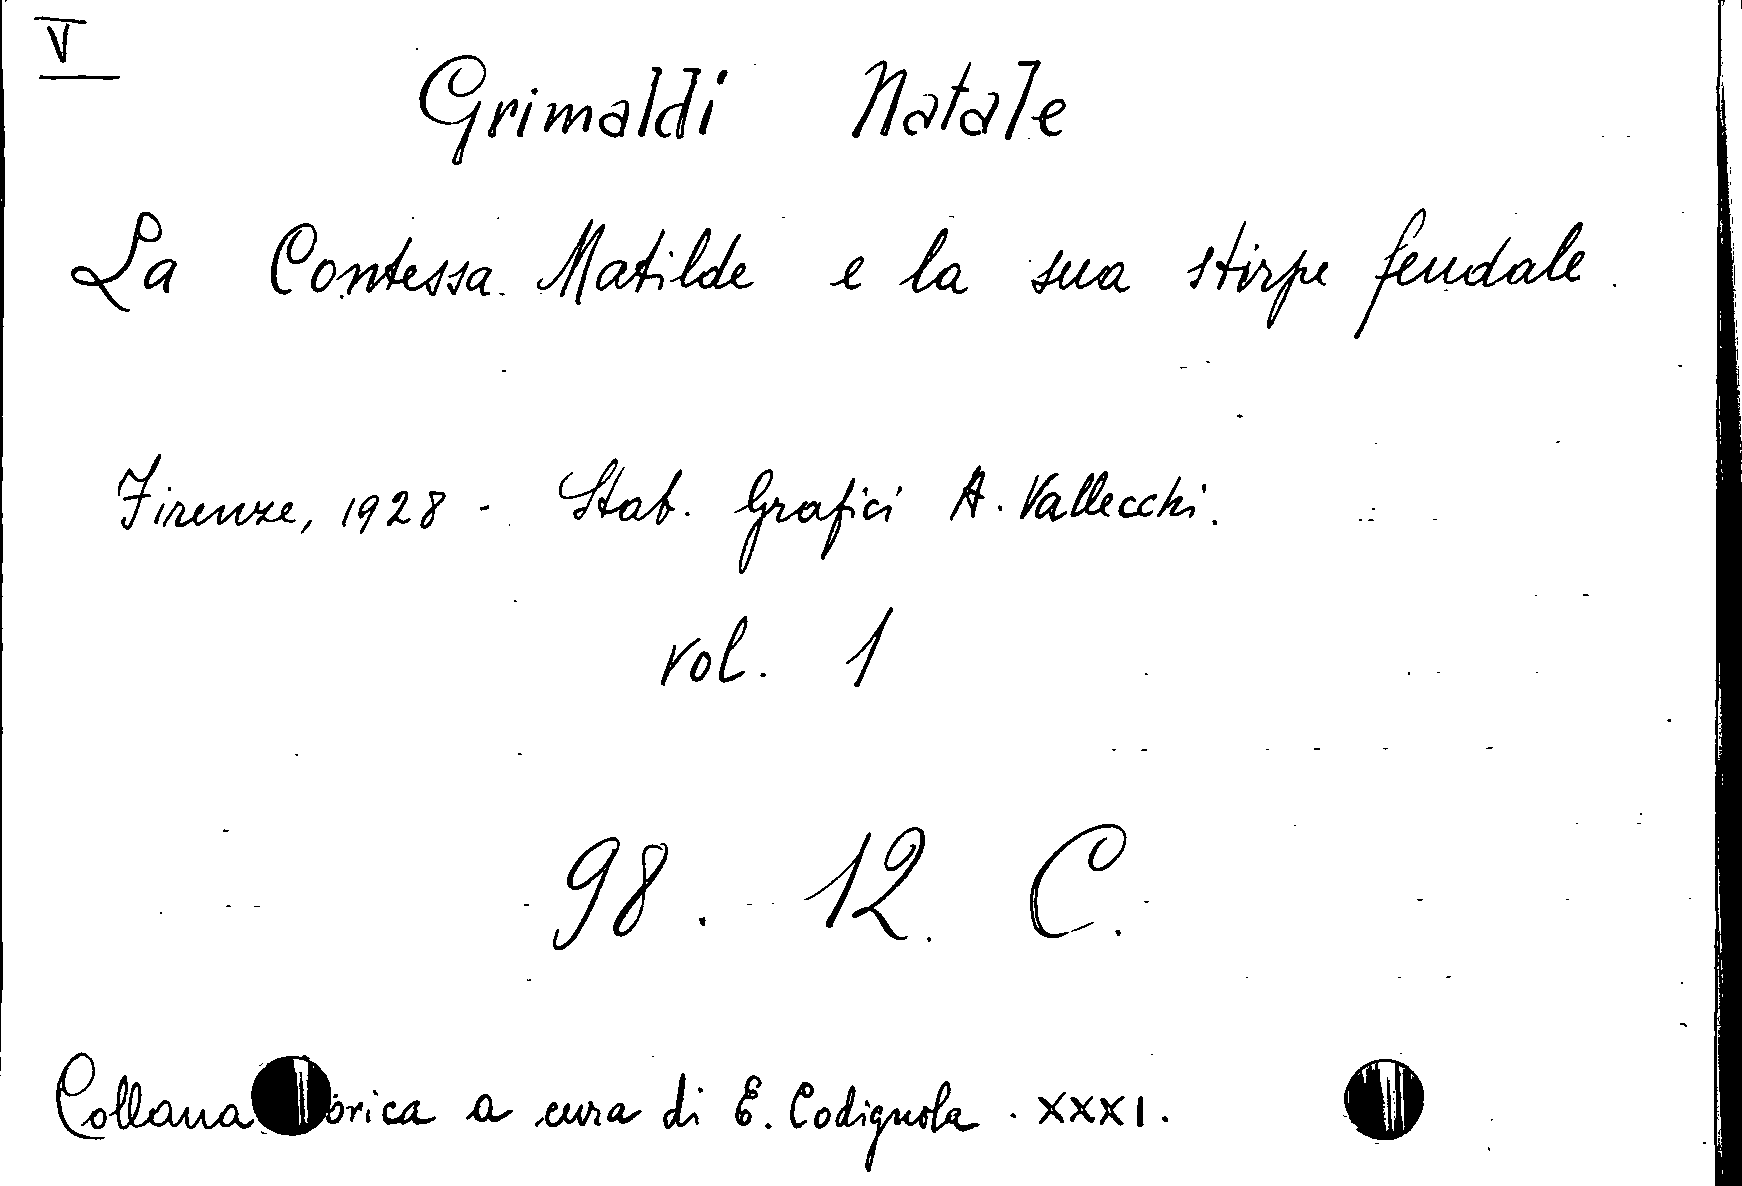 V
Grimaldi Natale
La Contessa Matilde e la sua stirpe feudale.
Firenze, 1928 - Stab. Grafici A. Vallecchi.
vol. 1
98. 12. C.
Collana orica a cura di E. Codignola. XXXI.